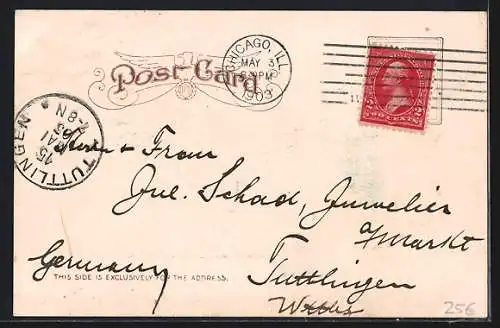 Post Card
CHICAGO, ILL.
MAY 3
PM
1903
2 2
TWO CENTS
TUTTLINGEN
15
MAI
03
7-8N
Herrn & Frau
Jul. Schad, Juwelier
a/Markt
Germany
Tuttlingen
THIS SIDE IS EXCLUSIVELY FOR THE ADDRESS.
256